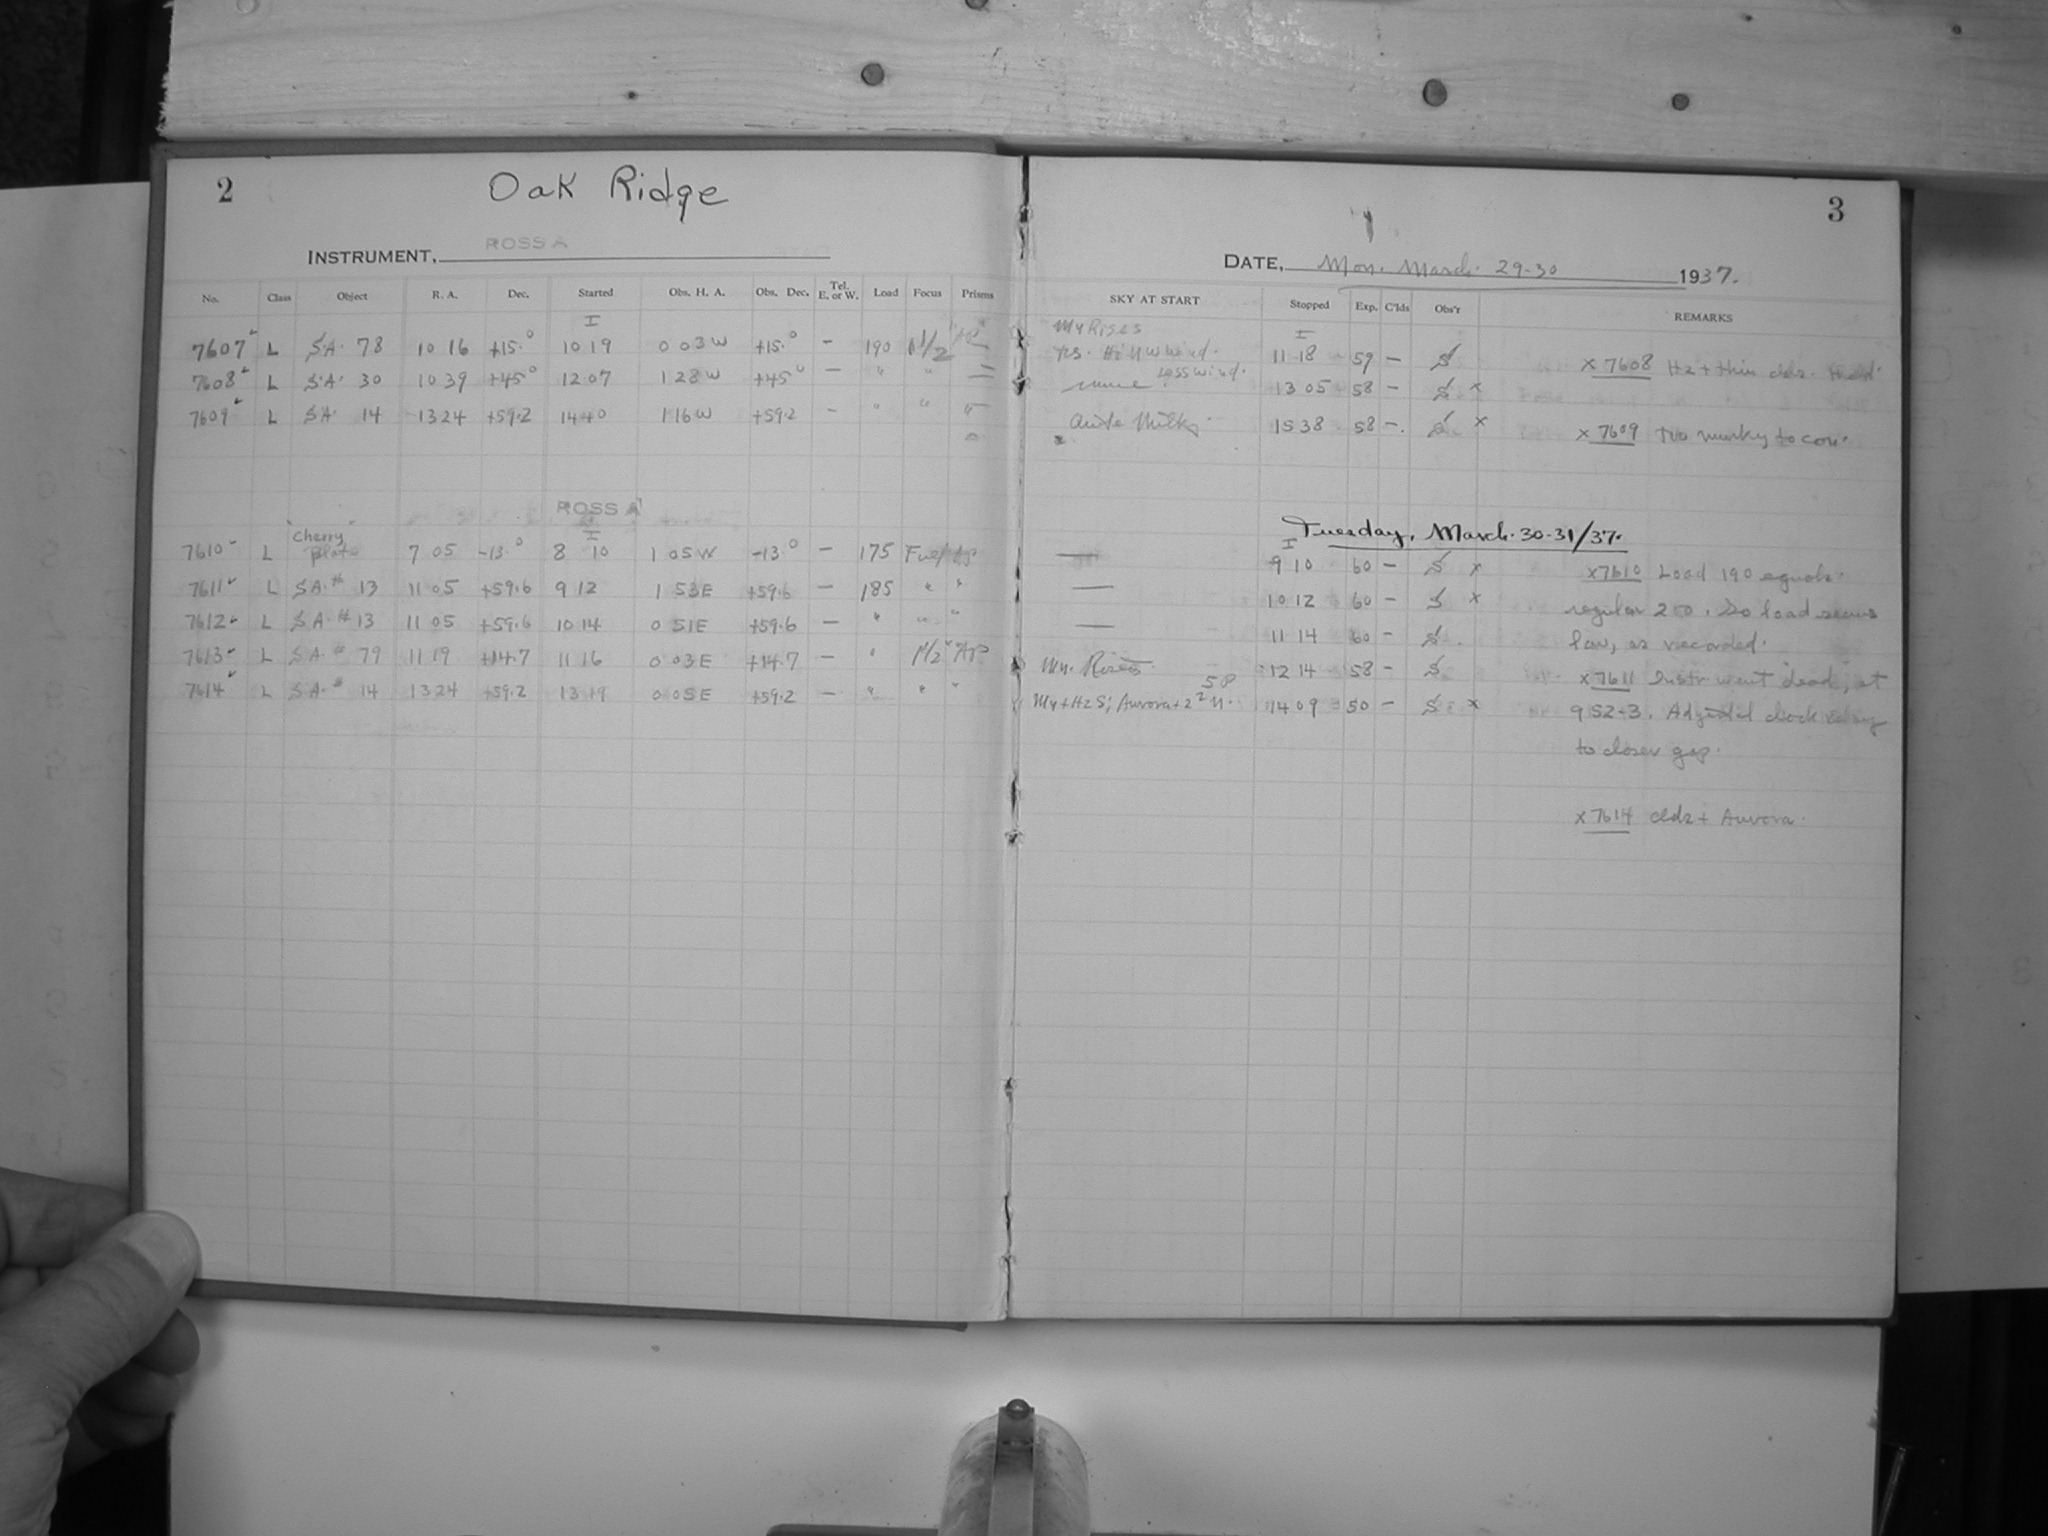 2
Oak Ridge
INSTRUMENT, ROSS A
No. Class Object R. A. Dec. Started Obs. H. A. Obs. Dec. Tel. E. or W. Load Focus Prisms
I
7607 L S.A. 78 10 16 +15.° 10 19 0 03 W +15.° - 190 1 1/2
7608 L S.A. 30 10 39 +45° 12 07 1 28 W +45° - " "
7609 L S.A. 14 13 24 +59.2 14 40 1 16 W +59.2 - " " "
ROSS A
I
7610 L "Cherry" Plate 7 05 -13.° 8 10 1 05 W -13.° - 175
7611 L S.A. # 13 11 05 +59.6 9 12 1 53 E +59.6 - 185 " "
7612 L S.A. # 13 11 05 +59.6 10 14 0 51 E +59.6 - " " "
7613 L S.A. # 79 11 19 +14.7 11 16 0 03 E +14.7 - " 1 1/2" Ap
7614 L S.A. # 14 13 24 +59.2 13 19 0 05 E +59.2 - " " "
3
DATE, Mon. March. 29-30 1937.
SKY AT START Stopped Exp. C'lds Obs'r REMARKS
My Rises
I
11 18 59 - S
less wind.
13 05 58 - S x
Quite Milky 15 38 58 - S x
x 7608 Hz + thin clds.
x 7609 Too murky to con.
Tuesday, March. 30-31/37.
I
— 9 10 60 - S x
— 10 12 60 - S x
— 11 14 60 - S
My. Rises 12 14 58 - S
My + Hz S; Aurora + 2² N. 14 09 50 - S x
x7610 Load 190 equals
regular 200. So load seems
low, as recorded.
x 7611 Instr. went "dead", at
9 52-3. Adjusted clock relay
to closer gap.
x 7614 clds + Aurora.